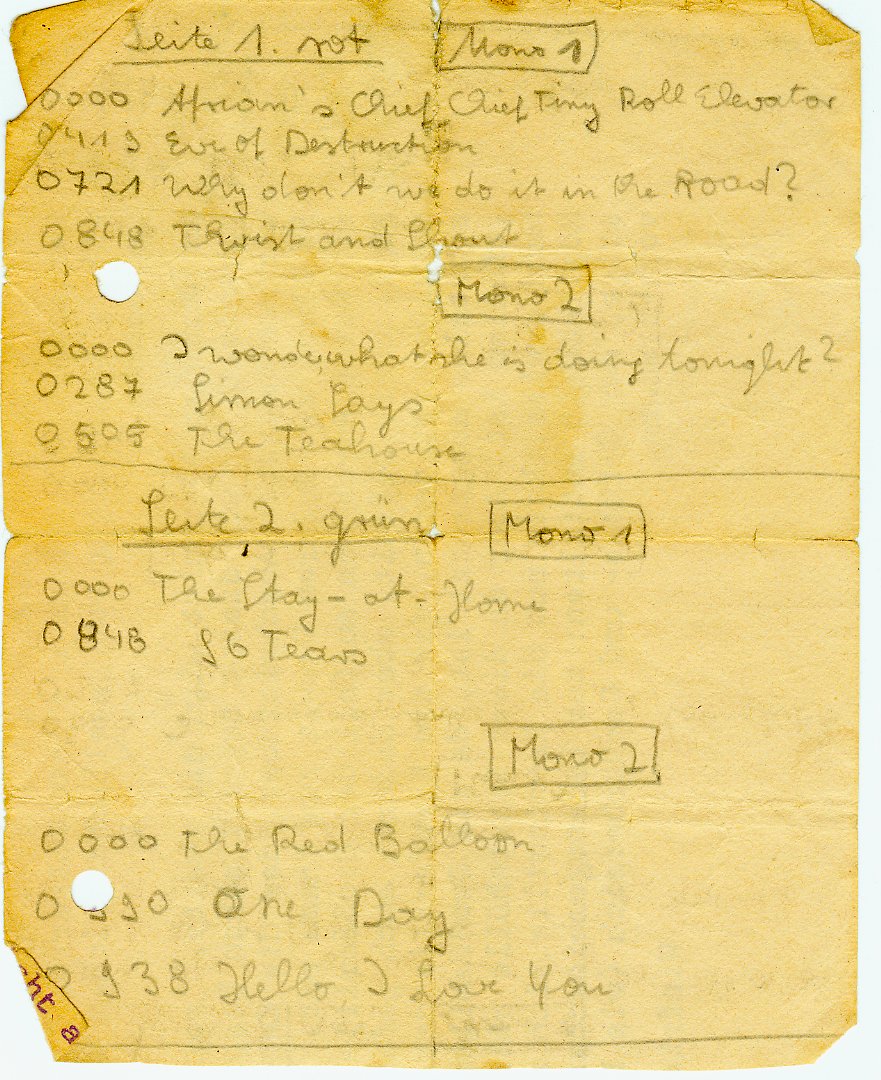 Seite 1. rot Mono 1
0000 Afrian's Chief, Chief Tiny Roll Elevator
0419 Eve of Destruction
0721 Why don't we do it in the Road?
0848 Thwist and Shout
Mono 2
0000 I wonder what she is doing tonight?
0287 Simon Says
0505 The Teahouse
Seite 2. grün Mono 1
0000 The Stay-at-Home
0848 96 Tears
Mono 2
0000 The Red Balloon
One Day
938 Hello, I Love You
ht a